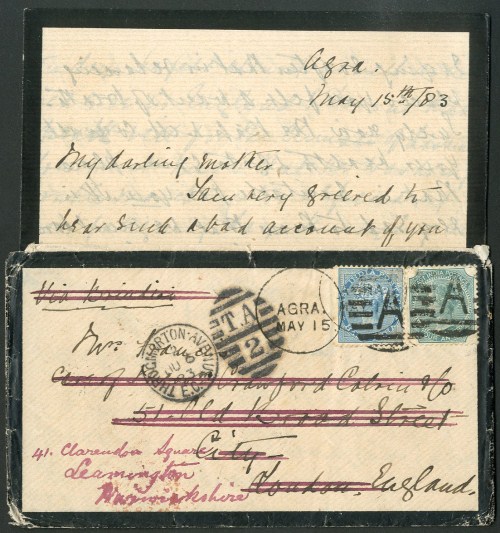 Agra.
May 15th/83
My darling Mother
I am very grieved to
hear such a bad account of you
Via Brindisi
AGRA.
MAY 15
A
A
T.A
2
THROGMORTON-AVENUE
JU 6
83
E.C.
Mrs
Crawford Colvin & Co
51. Old Broad Street
City
London. England.
41. Clarendon Square
Leamington
Warwickshire